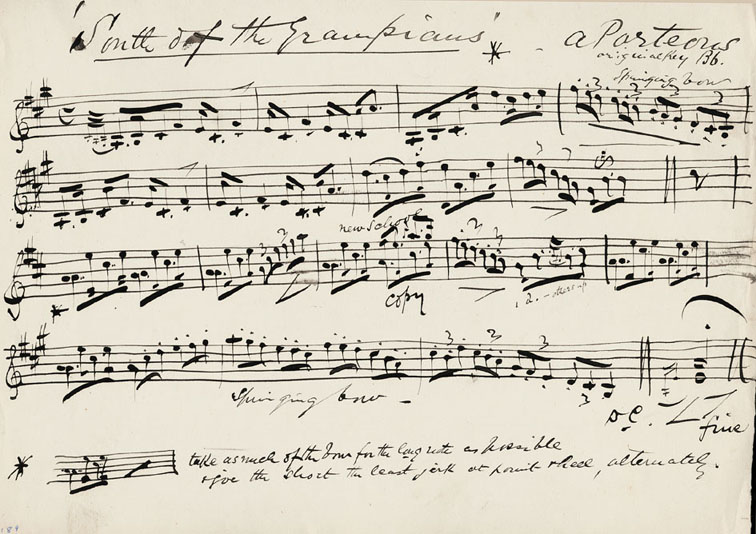 "South of the Grampians" * - a Porteous
original key Bb.
springing bow
3 3 3 3
3
new school
3 3
3 3 3
copy
1 2. - others up
3 3 3
3
springing bow -
D.C.
fine
* take as much of the bow for the long note as possible
& give the short the least jerk at point & heel, alternately.
189